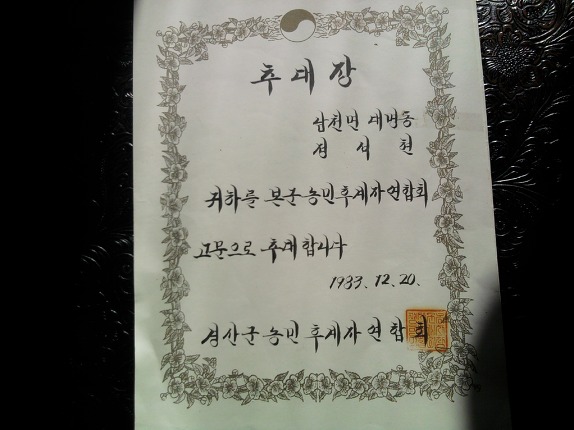 추대장
남천면 대명동
석
귀하를 본군 농민후계자연합회
고문으로 추대합니다
1933. 12. 20.
경산군 농민후계자연합회